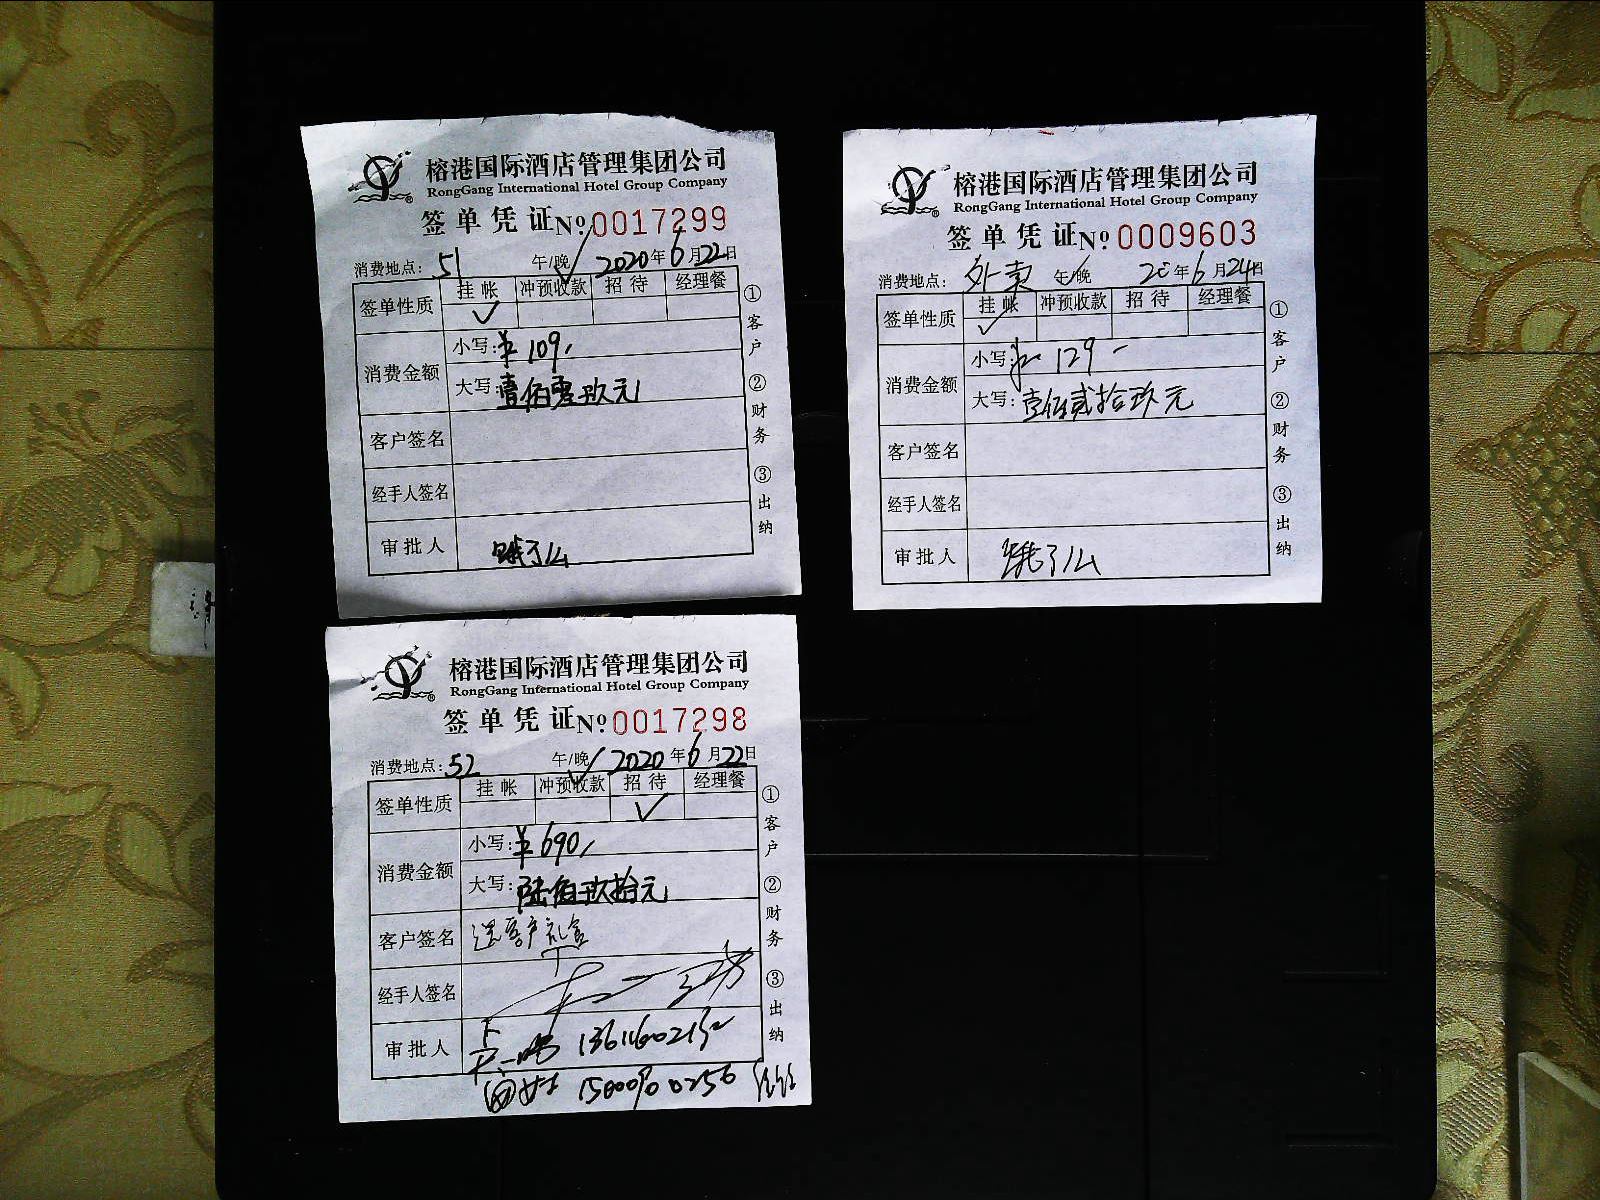 榕港国际酒店管理集团公司
RongGang International Hotel Group Company
签单凭证 No 0017299
消费地点: 51 午/晚 2020年6月22日
签单性质 挂帐 冲预收款 招待 经理餐
消费金额 小写: ¥109
大写: 壹佰零玖元
客户签名
经手人签名
审批人 饿了么
①客户 ②财务 ③出纳
榕港国际酒店管理集团公司
RongGang International Hotel Group Company
签单凭证 No 0009603
消费地点: 外卖 午/晚 20年6月24日
签单性质 挂帐 冲预收款 招待 经理餐
消费金额 小写: 129
大写: 壹佰贰拾玖元
客户签名
经手人签名
审批人 饿了么
①客户 ②财务 ③出纳
榕港国际酒店管理集团公司
RongGang International Hotel Group Company
签单凭证 No 0017298
消费地点: 52 午/晚 2020年6月22日
签单性质 挂帐 冲预收款 招待 经理餐
消费金额 小写: ¥690
大写: 陆佰玖拾元
客户签名 送客户礼盒
经手人签名
审批人
①客户 ②财务 ③出纳